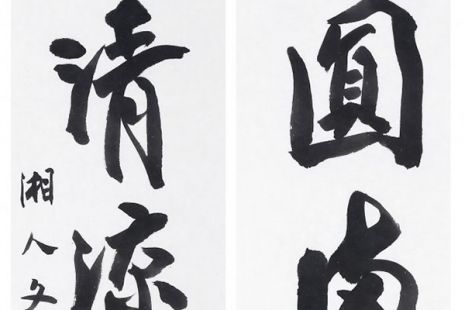 圓
清涼
湘人